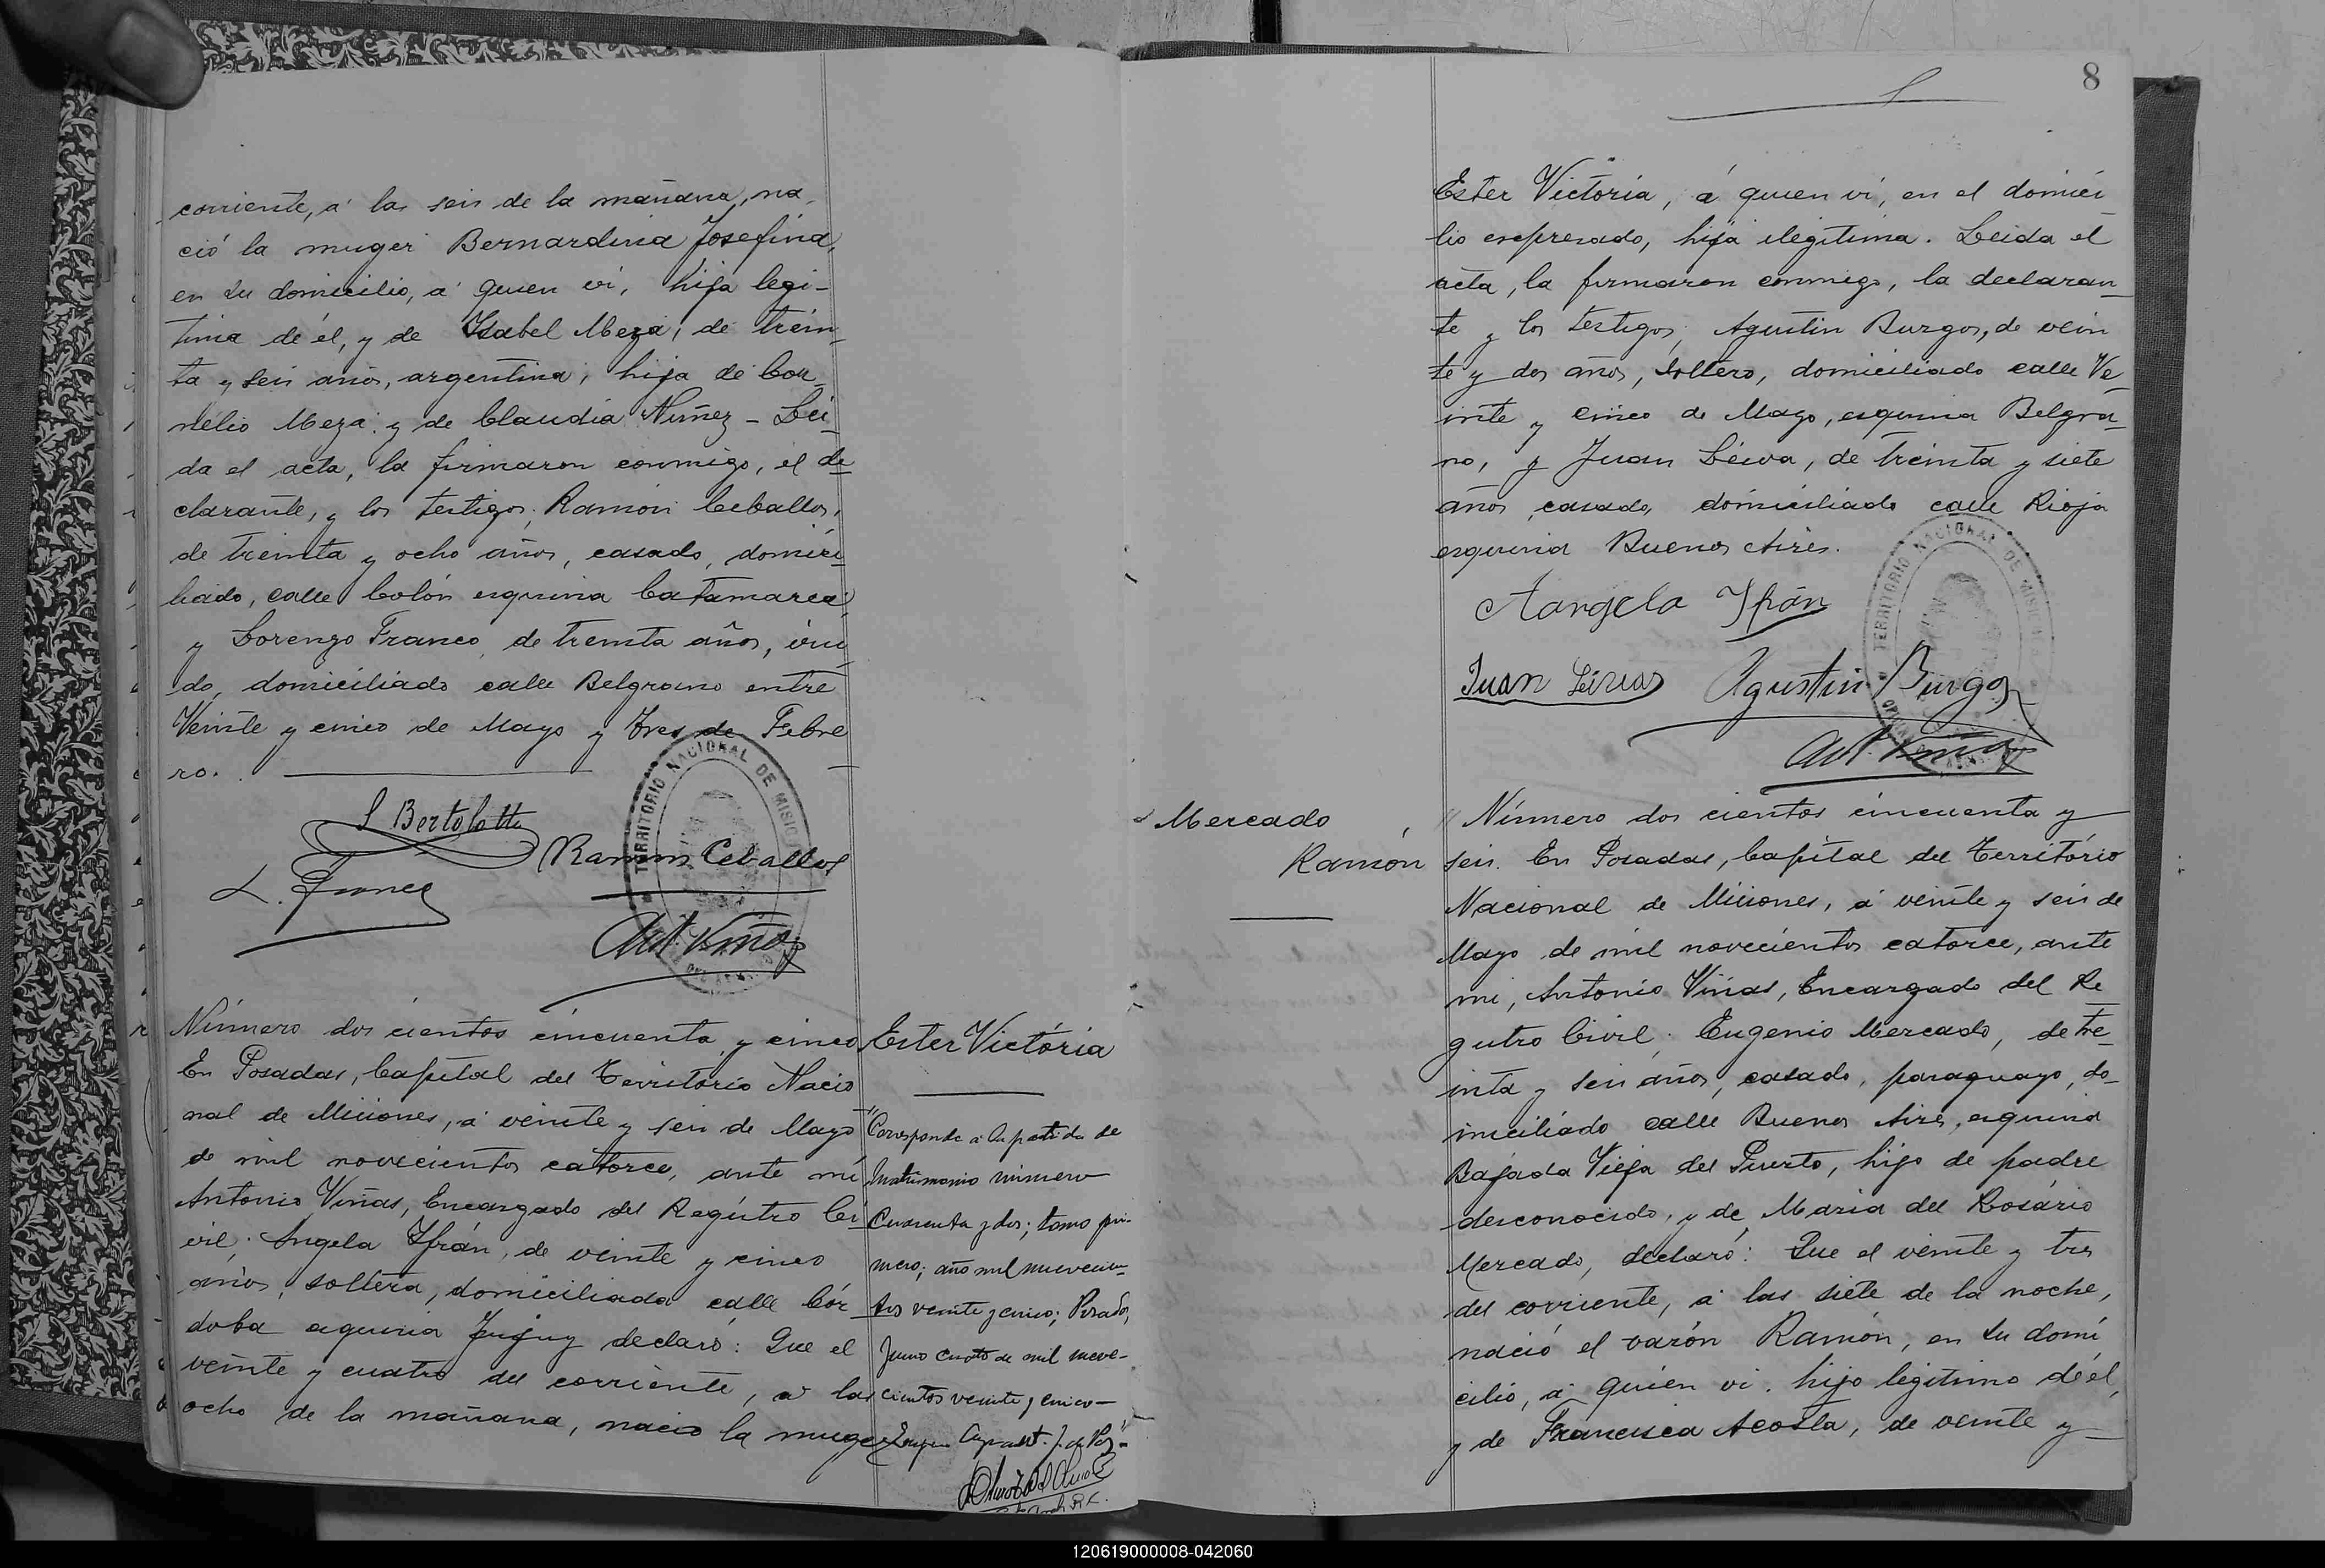 corriente, á las seis de la mañana, na
ció la muger Bernardina Josefina,
en su domicilio, á quien ví, hija legi-
tima de él, y de Ysabel Meza, de trein
ta y seis años, argentina, hija de Cor
nélio Meza y de Claudia Nuñez - Lei
da el acta, la firmaron conmigo, el de
clarante, y los testigos, Ramón Ceballos,
de treinta y ocho años, casado, domici
liado, calle Colón esquina Catamarca
y Lorenzo Franco, de treinta años, viu
do, domiciliado calle Belgrano entre
Veinte y cinco de Mayo y Tres de Febre
ro.
S Bertolotti
Ramon Ceballos
L. Franco
Ant. Viñas
TERRITORIO NACIONAL DE MISIONES
Número dos cientos cincuenta y cinco
En Posadas, Capital del Territorio Nacio
nal de Misiones, á veinte y seis de Mayo
de mil novecientos catorce, ante mí
Antonio Viñas, Encargado del Registro Ci
vil; Angela Yfrán, de veinte y cinco
años, soltera, domiciliada calle Cór
doba esquina Jujuy declaró: Que el
veinte y cuatro del corriente, á las
ocho de la mañana, nació la muger
Ester Victória
"Corresponde a la partida de
Matrimonio número
Cuarenta y dos; tomo pri-
mero; año mil novecien-
tos veinte y cinco; Posadas,
Junio cuatro de mil nove-
cientos veinte y cinco-
8
Ester Victoria, á quien ví, en el domici
lio expresado, hija ilegítima. Leida el
acta, la firmaron conmigo, la declaran
te y los testigos, Agustin Burgos, de vein
te y dos años, soltero, domiciliado calle Ve
inte y cinco de Mayo, esquina Belgra
no, y Juan Leiva, de treinta y siete
años, casado, domiciliado calle Rioja
esquina Buenos Aires.
Aangela Yfrán
Juan Leivas Agustin Burgos
Ant. Viñas
TERRITORIO NACIONAL DE MISIONES
Mercado
Ramón
Número dos cientos cincuenta y
seis. En Posadas, Capital del Território
Nacional de Misiones, á veinte y seis de
Mayo de mil novecientos catorce, ante
mi, Antonio Viñas, Encargado del Re
gistro Civil; Eugenio Mercado, de tre
inta y seis años, casado, paraguayo, do
miciliado calle Buenos Aires, esquina
Bajada Vieja del Puerto, hijo de padre
desconocido, y de Maria del Rosário
Mercado, declaró: Que el veinte y tres
del corriente, á las siete de la noche,
nació el varón Ramón, en su domi
cilio, á quién vi, hijo legítimo de él,
y de Francisca Acosta, de veinte y
120619000008-042060